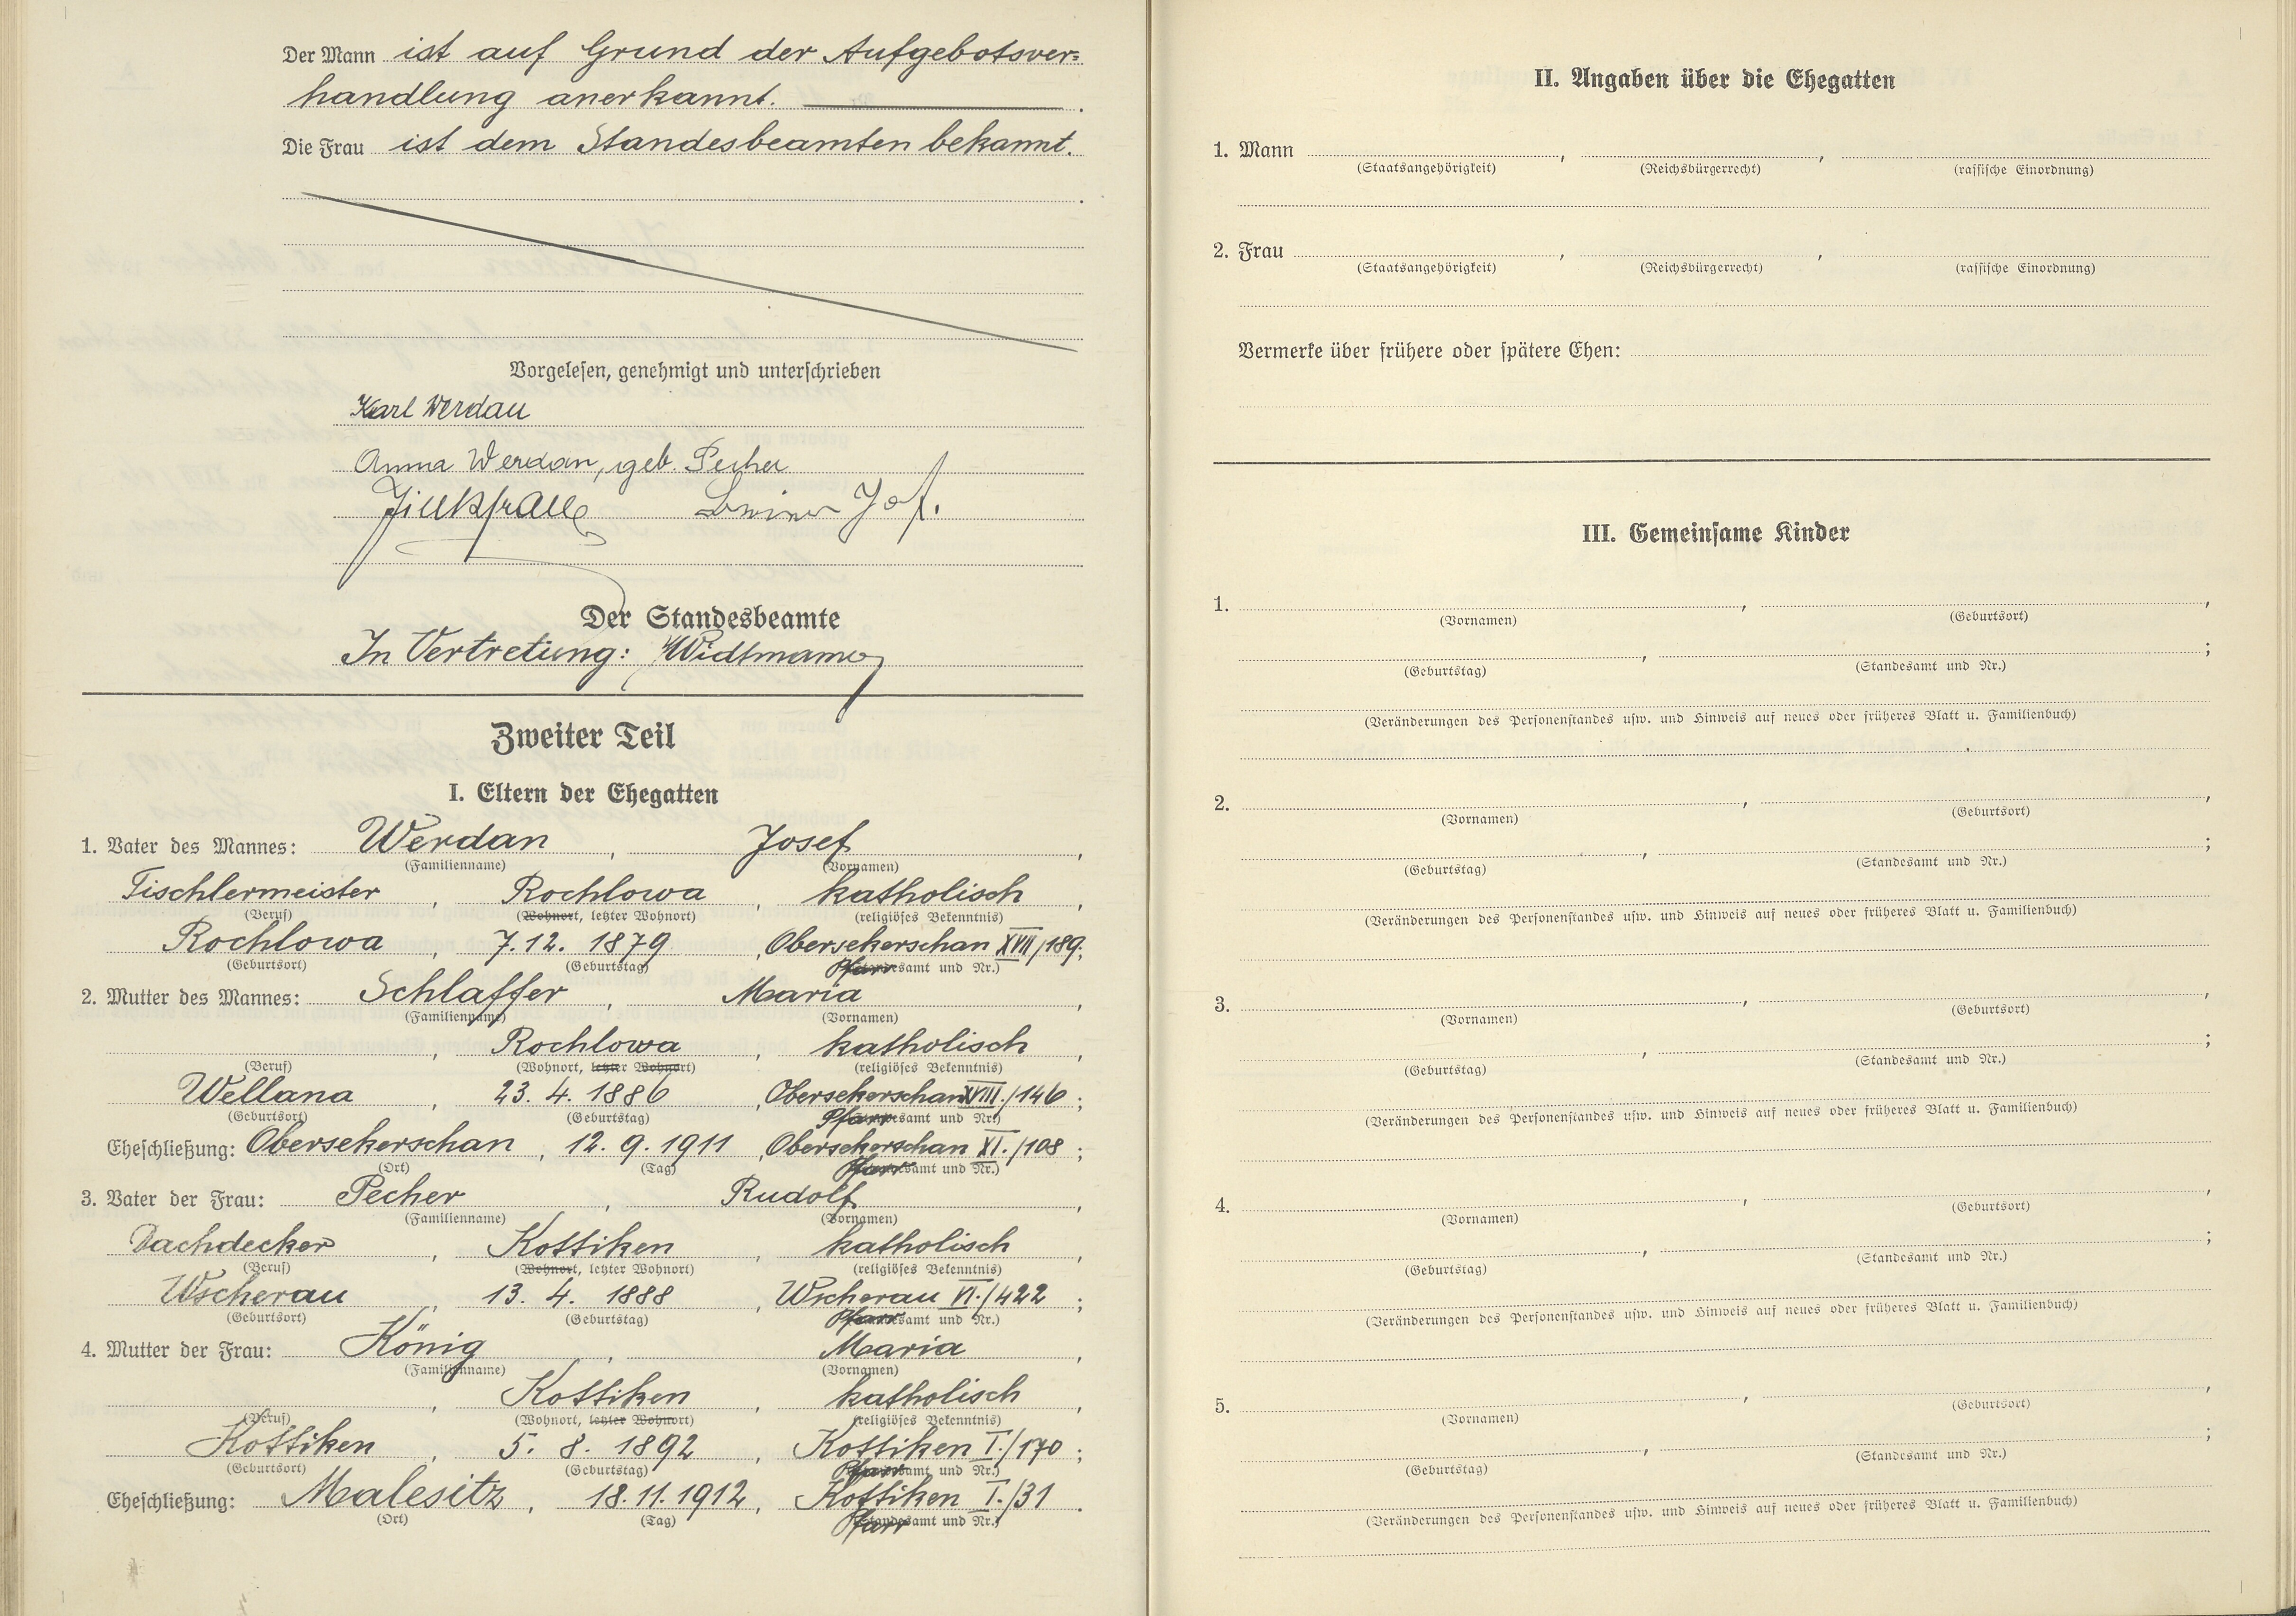 Der Mann ist auf Grund der Aufgebotsver=
handlung anerkannt.
Die Frau ist dem Standesbeamten bekannt.
Vorgelesen, genehmigt und unterschrieben
Karl Werdau
Anna Werdan, geb. Pecher
Josf.
Der Standesbeamte
In Vertretung: Widtmann
Zweiter Teil
I. Eltern der Ehegatten
1. Vater des Mannes: Werdan, Josef,
(Familienname) (Vornamen)
Tischlermeister, Rochlowa, katholisch,
(Beruf) (Wohnort, letzter Wohnort) (religiöses Bekenntnis)
Rochlowa, 7.12. 1879, Obersekerschan XVII/189;
(Geburtsort) (Geburtstag) Pfarramt und Nr.)
2. Mutter des Mannes: Schlaffer, Maria,
(Familienname) (Vornamen)
, Rochlowa, katholisch,
(Beruf) (Wohnort, letzter Wohnort) (religiöses Bekenntnis)
Wellana, 23. 4. 1886, Obersekerschan XVIII./146;
(Geburtsort) (Geburtstag) Pfarramt und Nr.)
Eheschließung: Obersekerschan, 12. 9. 1911, Obersekerschan XI./108;
(Ort) (Tag) Pfarramt und Nr.)
3. Vater der Frau: Pecher, Rudolf,
(Familienname) (Vornamen)
Dachdecker, Kottiken, katholisch,
(Beruf) (Wohnort, letzter Wohnort) (religiöses Bekenntnis)
Wscherau, 13. 4. 1888, Wscherau VI./422;
(Geburtsort) (Geburtstag) Pfarramt und Nr.)
4. Mutter der Frau: König, Maria,
(Familienname) (Vornamen)
, Kottiken, katholisch,
(Beruf) (Wohnort, letzter Wohnort) (religiöses Bekenntnis)
Kottiken, 5. 8. 1892, Kottiken I./170;
(Geburtsort) (Geburtstag) Pfarramt und Nr.)
Eheschließung: Malesitz, 18.11.1912, Kottiken I./31.
(Ort) (Tag) (Standesamt und Nr.)
Pfarr
II. Angaben über die Ehegatten
1. Mann , ,
(Staatsangehörigkeit) (Reichsbürgerrecht) (rassische Einordnung)
2. Frau , ,
(Staatsangehörigkeit) (Reichsbürgerrecht) (rassische Einordnung)
Vermerke über frühere oder spätere Ehen:
III. Gemeinsame Kinder
1. , ,
(Vornamen) (Geburtsort)
, ;
(Geburtstag) (Standesamt und Nr.)
(Veränderungen des Personenstandes usw. und Hinweis auf neues oder früheres Blatt u. Familienbuch)
2. , ,
(Vornamen) (Geburtsort)
, ;
(Geburtstag) (Standesamt und Nr.)
(Veränderungen des Personenstandes usw. und Hinweis auf neues oder früheres Blatt u. Familienbuch)
3. , ,
(Vornamen) (Geburtsort)
, ;
(Geburtstag) (Standesamt und Nr.)
(Veränderungen des Personenstandes usw. und Hinweis auf neues oder früheres Blatt u. Familienbuch)
4. , ,
(Vornamen) (Geburtsort)
, ;
(Geburtstag) (Standesamt und Nr.)
(Veränderungen des Personenstandes usw. und Hinweis auf neues oder früheres Blatt u. Familienbuch)
5. , ,
(Vornamen) (Geburtsort)
, ;
(Geburtstag) (Standesamt und Nr.)
(Veränderungen des Personenstandes usw. und Hinweis auf neues oder früheres Blatt u. Familienbuch)